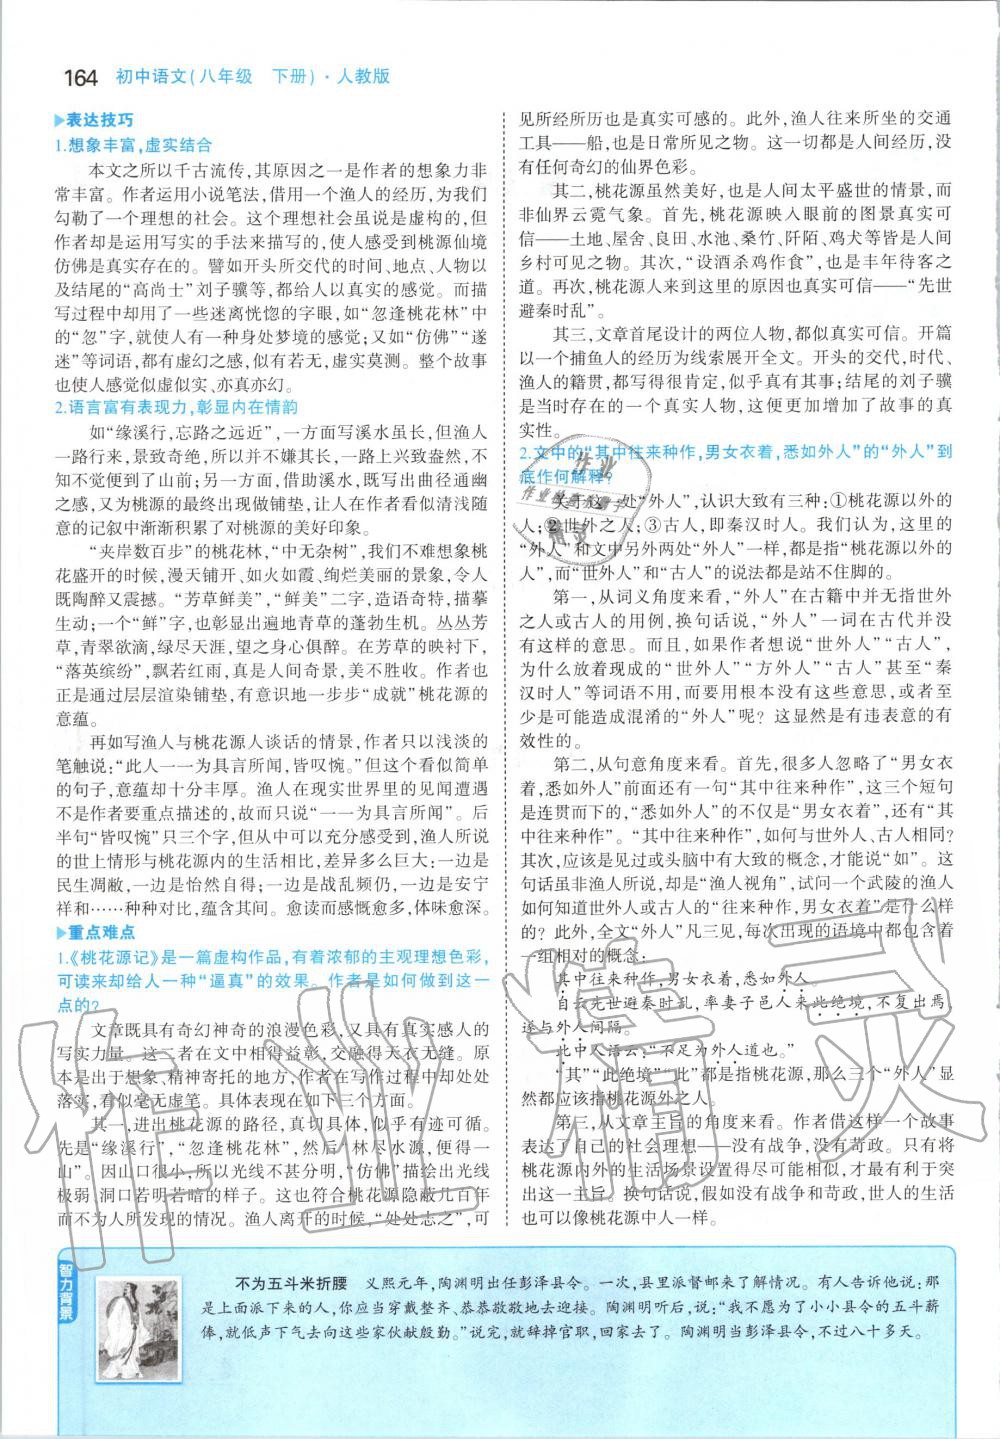 164 初中语文(八年级 下册)·人教版
表达技巧
1.想象丰富,虚实结合
本文之所以千古流传,其原因之一是作者的想象力非
常丰富。作者运用小说笔法,借用一个渔人的经历,为我们
勾勒了一个理想的社会。这个理想社会虽说是虚构的,但
作者却是运用写实的手法来描写的,使人感受到桃源仙境
仿佛是真实存在的。譬如开头所交代的时间、地点、人物以
及结尾的“高尚士”刘子骥等,都给人以真实的感觉。而描
写过程中却用了一些迷离恍惚的字眼,如“忽逢桃花林”中
的“忽”字,就使人有一种身处梦境的感觉;又如“仿佛”“遂
迷”等词语,都有虚幻之感,似有若无,虚实莫测。整个故事
也使人感觉似虚似实、亦真亦幻。
2.语言富有表现力,彰显内在情韵
如“缘溪行,忘路之远近”,一方面写溪水虽长,但渔人
一路行来,景致奇绝,所以并不嫌其长,一路上兴致盎然,不
知不觉便到了山前;另一方面,借助溪水,既写出曲径通幽
之感,又为桃源的最终出现做铺垫,让人在作者看似清浅随
意的记叙中渐渐积累了对桃源的美好印象。
“夹岸数百步”的桃花林,“中无杂树”,我们不难想象桃
花盛开的时候,漫天铺开、如火如霞、绚烂美丽的景象,令人
既陶醉又震撼。“芳草鲜美”,“鲜美”二字,造语奇特,描摹
生动;一个“鲜”字,也彰显出遍地青草的蓬勃生机。丛丛芳
草,青翠欲滴,绿尽天涯,望之身心俱醉。在芳草的映衬下,
“落英缤纷”,飘若红雨,真是人间奇景,美不胜收。作者也
正是通过层层渲染铺垫,有意识地一步步“成就”桃花源的
意蕴。
再如写渔人与桃花源人谈话的情景,作者只以浅淡的
笔触说:“此人一一为具言所闻,皆叹惋。”但这个看似简单
的句子,意蕴却十分丰厚。渔人在现实世界里的见闻遭遇
不是作者要重点描述的,故而只说“一一为具言所闻”。后
半句“皆叹惋”只三个字,但从中可以充分感受到,渔人所说
的世上情形与桃花源内的生活相比,差异多么巨大:一边是
民生凋敝,一边是怡然自得;一边是战乱频仍,一边是安宁
祥和……种种对比,蕴含其间。愈读而感慨愈多,体味愈深。
重点难点
1.《桃花源记》是一篇虚构作品,有着浓郁的主观理想色彩,
可读来却给人一种“逼真”的效果。作者是如何做到这一
点的?
文章既具有奇幻神奇的浪漫色彩,又具有真实感人的
写实力量。这二者在文中相得益彰,交融得天衣无缝。原
本是出于想象、精神寄托的地方,作者在写作过程中却处处
落实,看似毫无虚笔。具体表现在如下三个方面。
其一,进出桃花源的路径,真切具体,似乎有迹可循。
先是“缘溪行”,“忽逢桃花林”,然后“林尽水源,便得一
山”。因山口很小,所以光线不甚分明,“仿佛”描绘出光线
极弱、洞口若明若暗的样子。这也符合桃花源隐蔽几百年
而不为人所发现的情况。渔人离开的时候,“处处志之”,可
见所经所历也是真实可感的。此外,渔人来所坐的交通
工具——船,也是日常所见之物。这一切都是人间经历,没
有任何奇幻的仙界色彩。
其二,桃花源虽然美好,也是人间太平盛世的情景,而
非仙界云霓气象。首先,桃花源映入眼前的图景真实可
信——土地、屋舍、良田、水池、桑竹、阡陌、鸡犬等皆是人间
乡村可见之物。其次,“设酒杀鸡作食”,也是丰年待客之
道。再次,桃花源人来到这里的原因也真实可信——“先世
避秦时乱”。
其三,文章首尾设计的两位人物,都似真实可信。开篇
以一个捕鱼人的经历为线索展开全文。开头的交代,时代、
渔人的籍贯,都写得很肯定,似乎真有其事;结尾的刘子骥
是当时存在的一个真实人物,这便更加增加了故事的真
实性。
2.文中的“其中往来种作,男女衣着,悉如外人”的“外人”到
底作何解释?
关于这一处“外人”,认识大致有三种:①桃花源以外的
人;②世外之人;③古人,即秦汉时人。我们认为,这里的
“外人”和文中另外两处“外人”一样,都是指“桃花源以外的
人”,而“世外人”和“古人”的说法都是站不住脚的。
第一,从词义角度来看,“外人”在古籍中并无指世外
之人或古人的用例,换句话说,“外人”一词在古代并没有
这样的意思。而且,如果作者想说“世外人”“古人”,
为什么放着现成的“世外人”“方外人”“古人”甚至“秦
汉时人”等词语不用,而要用根本没有这些意思,或者至
少是可能造成混淆的“外人”呢?这显然是有违表意的有
效性的。
第二,从句意角度来看。首先,很多人忽略了“男女衣
着,悉如外人”前面还有一句“其中往来种作”,这三个短句
是连贯而下的,“悉如外人”的不仅是“男女衣着”,还有“其
中往来种作”。“其中往来种作”,如何与世外人、古人相同?
其次,应该是见过或头脑中有大致的概念,才能说“如”。这
句话虽非渔人所说,却是“渔人视角”,试问一个武陵的渔人
如何知道世外人或古人的“往来种作,男女衣着”是什么样
的?此外,全文“外人”凡三见,每次出现的语境中都包含着
一组相对的概念:
其中往来种作,男女衣着,悉如外人。
自云先世避秦时乱,率妻子邑人来此绝境,不复出焉,
遂与外人间隔。
此中人语云:“不足为外人道也。”
“其”“此绝境”“此”都是指桃花源,那么三个“外人”显
然都应该指桃花源外之人。
第三,从文章主旨的角度来看。作者借这样一个故事
表达了自己的社会理想——没有战争,没有苛政。只有将
桃花源内外的生活场景设置得尽可能相似,才最有利于突
出这一主旨。换句话说,假如没有战争和苛政,世人的生活
也可以像桃花源中人一样。
智力背景
不为五斗米折腰 义熙元年,陶渊明出任彭泽县令。一次,县里派督邮来了解情况。有人告诉他说:那
是上面派下来的人,你应当穿戴整齐、恭恭敬敬地去迎接。陶渊明听后,说:“我不愿为了小小县令的五斗薪
俸,就低声下气去向这些家伙献殷勤。”说完,就辞掉官职,回家去了。陶渊明当彭泽县令,不过八十多天。
作业精灵